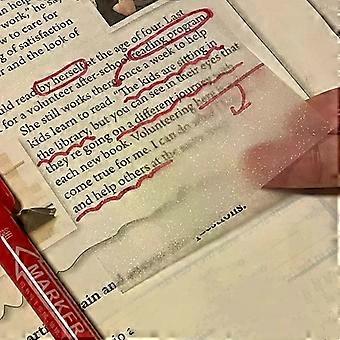 or and he
cow for
ng of satisfaction
er and the look of
ld read by herself at the age of four. Last
for a volunteer after-school reading program
She still works there once a week to help
kids learn to read. "The kids are sitting in
the library, but you can see in their eyes that
they're going on a different journey
each new book. Volunteering
come true for me. I can do
and help others at the same
ain and
MARKER